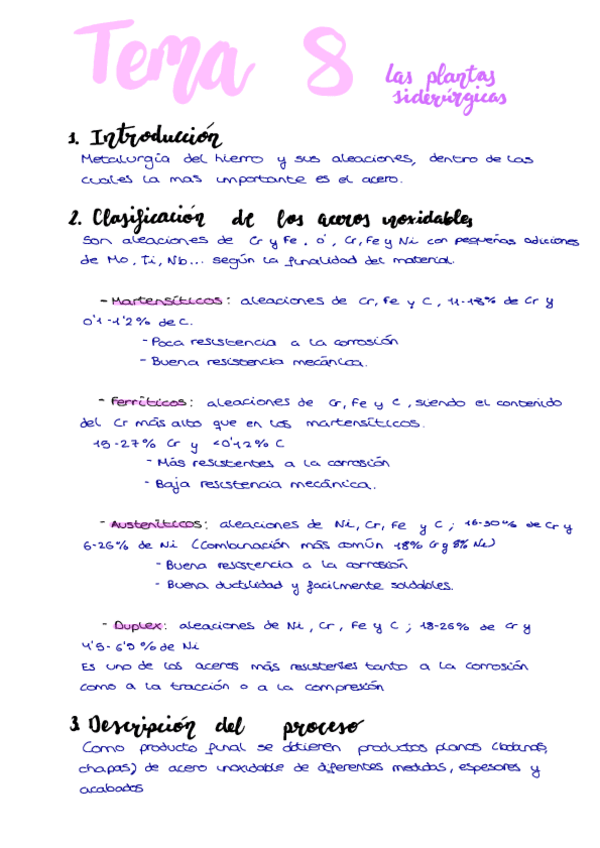 Tema 8 Las plantas
siderúrgicas
1. Introducción
Metalurgia del hierro y sus aleaciones, dentro de las
cuales la mas importante es el acero.
2. Clasificación de los aceros inoxidables
Son aleaciones de Cr y Fe, o, Cr, Fe y Ni con pequeñas adiciones
de Mo, Ti, Nb... según la finalidad del material.
- Martensíticos: aleaciones de Cr, Fe y C, 11-18% de Cr y
0'1-1'2% de C.
- Poca resistencia a la corrosión
- Buena resistencia mecánica.
- Ferríticos: aleaciones de Cr, Fe y C, siendo el contenido
del Cr más alto que en los martensíticos.
15-27% Cr y <0'12% C
- Más resistentes a la corrosión
- Baja resistencia mecánica.
- Austeníticos: aleaciones de Ni, Cr, Fe y C; 16-30% de Cr y
6-26% de Ni (Combinación más común 18% Cr y 8% Ni)
- Buena resistencia a la corrosión
- Buena ductilidad y facilmente soldables.
- Duplex: aleaciones de Ni, Cr, Fe y C; 18-26% de Cr y
4'5-6'5% de Ni
Es uno de los aceros más resistentes tanto a la corrosión
como a la tracción o a la compresión
3. Descripción del proceso
Como producto final se obtienen productos planos (bobinas,
chapas) de acero inoxidable de diferentes medidas, espesores y
acabados